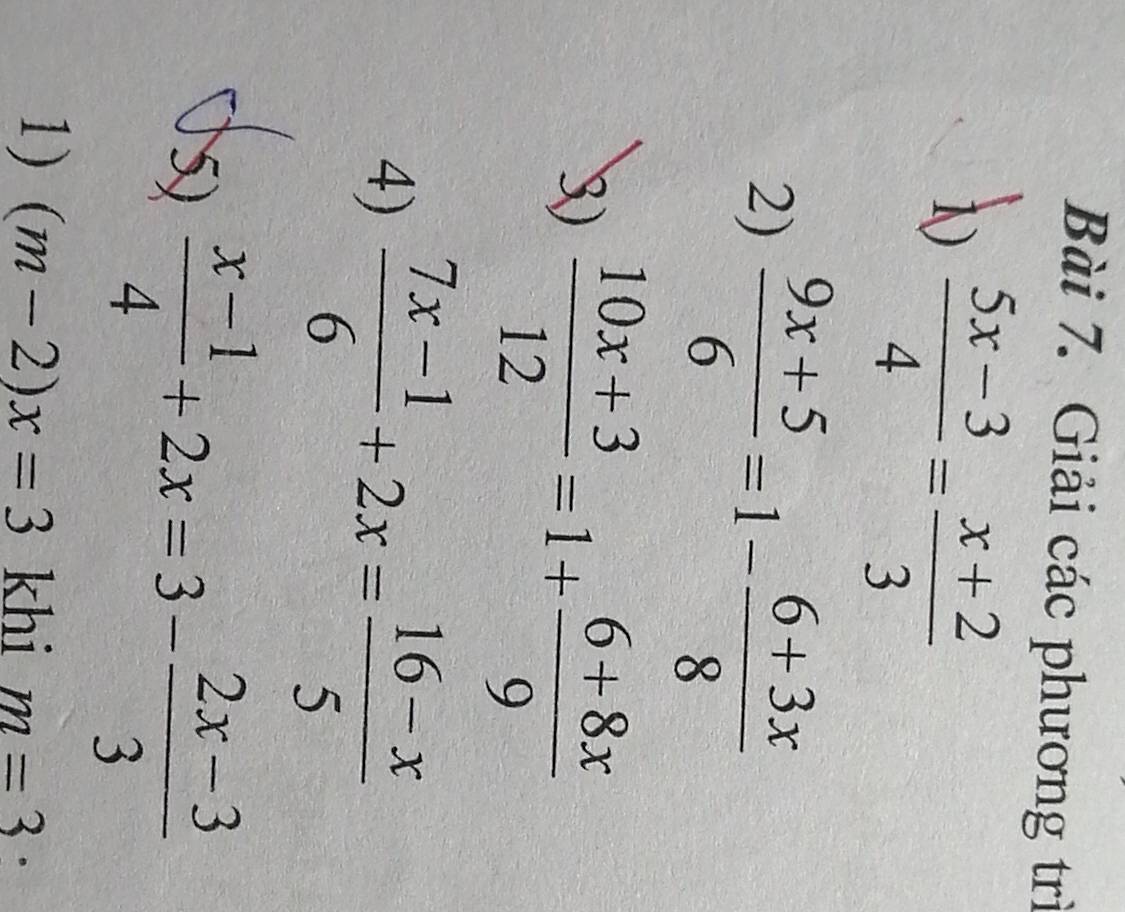 Bài 7. Giải các phương trì
1) \frac{5x-3}{4} = \frac{x+2}{3}
2) \frac{9x+5}{6} = 1 - \frac{6+3x}{8}
3) \frac{10x+3}{12} = 1 + \frac{6+8x}{9}
4) \frac{7x-1}{6} + 2x = \frac{16-x}{5}
5) \frac{x-1}{4} + 2x = 3 - \frac{2x-3}{3}
1) (m-2)x = 3 khi m = 3;